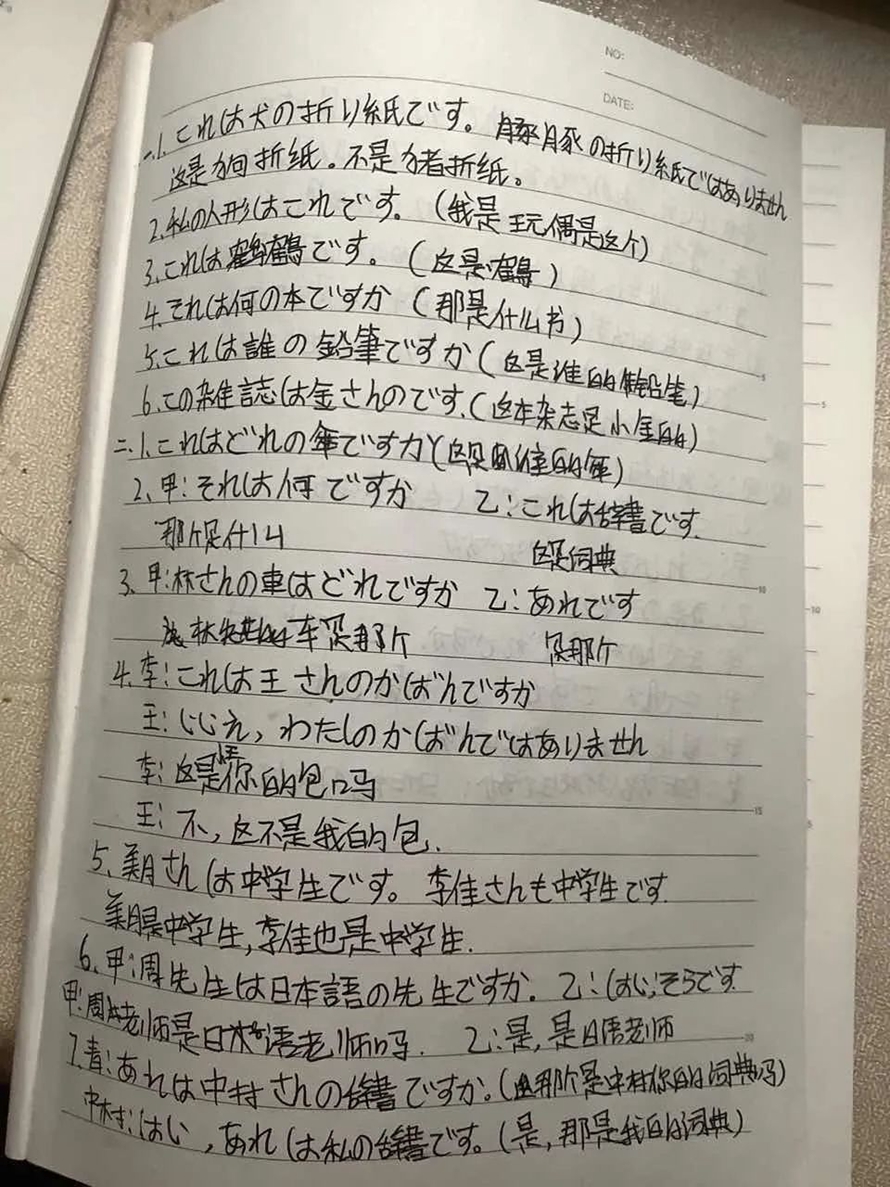 NO:
DATE:
一.1.これは犬の折り紙です。豚の折り紙ではありません
这是狗折纸。不是猪折纸。
2.私の人形はこれです。(我是玩偶是这个)
3.これは鶴です。(这是鹤)
4.それは何の本ですか (那是什么书)
5.これは誰の鉛筆ですか(这是谁的铅笔)
6.この雑誌は金さんのです.(这本杂志是小金的)
二.1.これはどれの傘ですか(这是谁的伞)
2.甲:それは何ですか 乙:これは辞書です.
那个是什么 这是词典
3.甲:林さんの車はどれですか 乙:あれです
林先生的车是那个 是那个
4.李:これは王さんのかばんですか
王:いいえ,わたしのかばんではありません
李:这是你的包吗
王:不,这不是我的包.
5.美月さんは中学生です。李佳さんも中学生です.
美月是中学生,李佳也是中学生.
6.甲:周先生は日本語の先生ですか. 乙:はい,そうです
甲:周老师是日本语老师吗. 乙:是,是日语老师
7.青:あれは中村さんの辞書ですか.(那个是中村你的词典吗)
中村:はい,あれは私の辞書です.(是,那是我的词典)
5
10
15
20
5
10